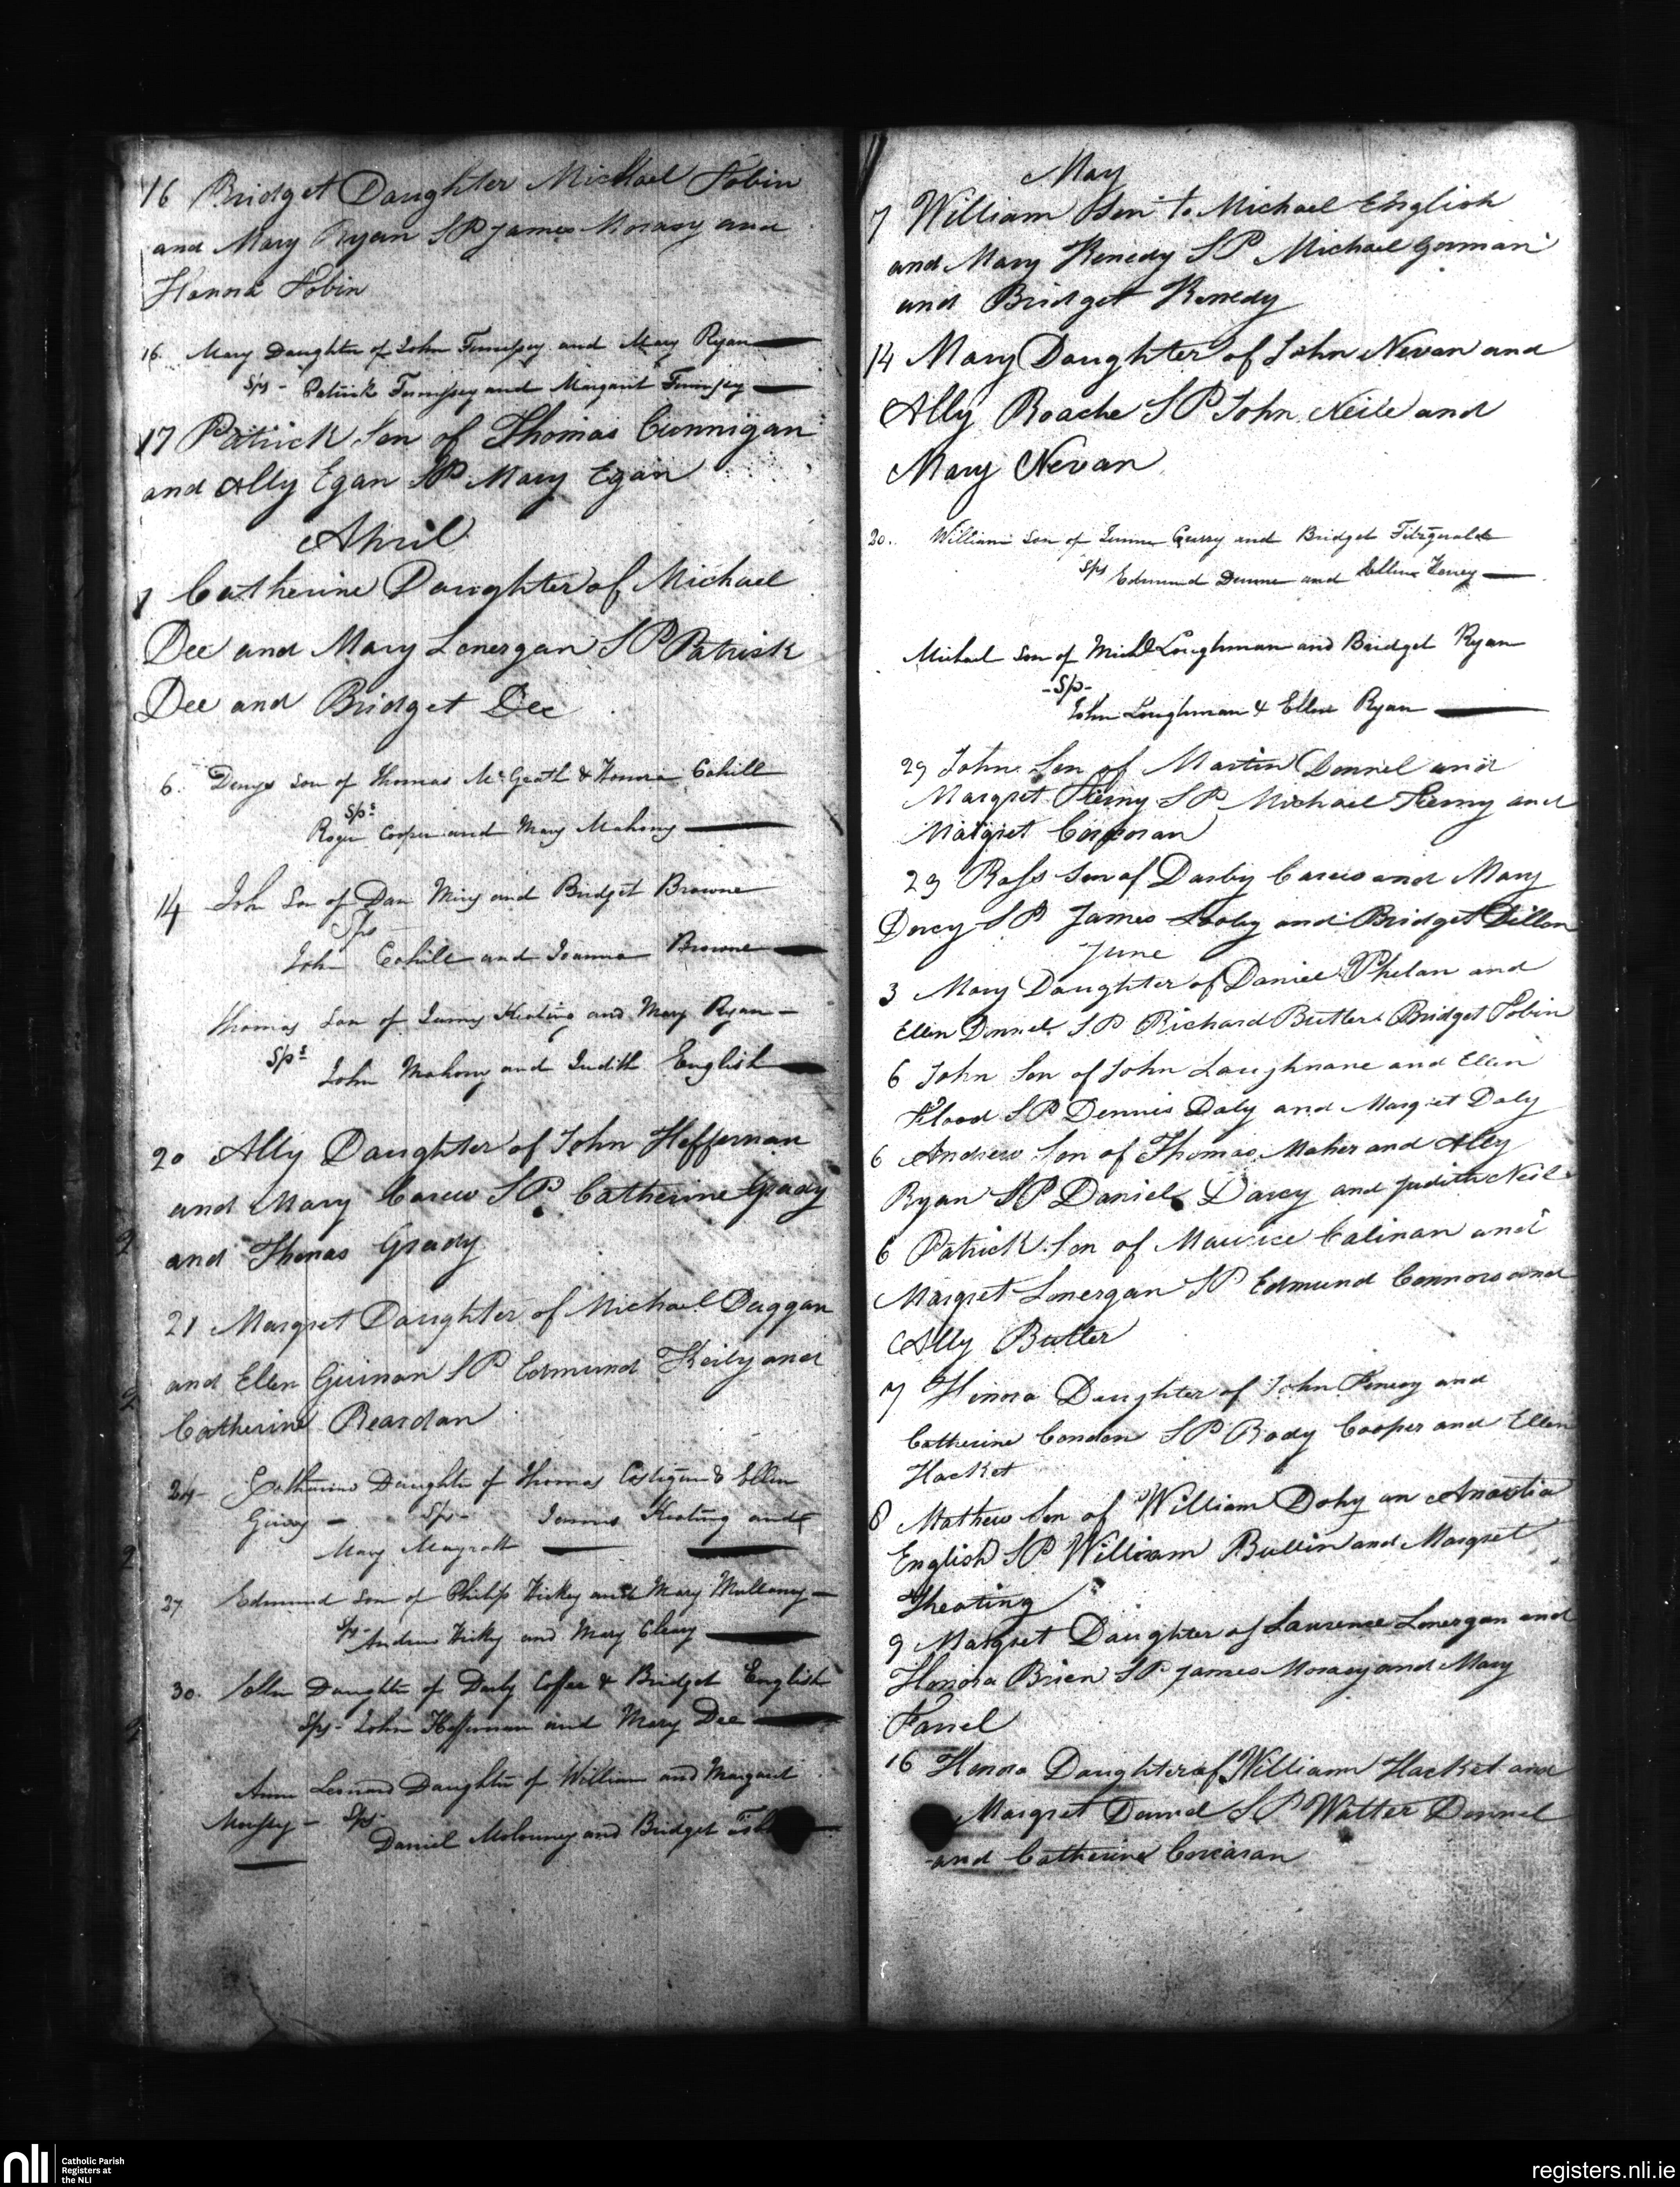 16 Bridget Daughter Michael Tobin
and Mary Ryan SP James Morasy and
Honora Tobin
16. Mary Daughter of John and Mary Ryan
Sps - Patrick and Margaret
17 Patrick Son of Thomas Cunnigan
and Ally Egan SP Mary Egan
April
1 Catherine Daughter of Michael
Dee and Mary Lonergan SP Patrick
Dee and Bridget Dee
6. Denys Son of Thomas McGrath & Honora Cahill
Sps
Roger Cooper and Mary Mahony
14 John Son of Dan and Bridget Browne
Sps
John Cahill and Joanna Browne
Thomas Son of James Keating and Mary Ryan
Sps John Mahony and Judith English
20 Ally Daughter of John Heffernan
and Mary Carew SP Catherine Grady
and Thomas Grady
21 Margret Daughter of Michael Duggan
and Ellen SP Edmund Keily and
Catherine Reardan
24 Catherine Daughter of Thomas Costigan & Ellen
Sps James Keating and
Mary Magrath
27 Edmund Son of Philip Hickey and Mary Mullany
Sps Andrew Hickey and Mary Cleary
30. Ellen Daughter of Darby & Bridget English
Sps - John Heffernan and Mary Dee
Ann Leonard Daughter of William and Margaret
Sps
Daniel Molouney and Bridget
May
7 William Son to Michael English
and Mary Kenedy SP Michael Gorman
and Bridget Kenedy
14 Mary Daughter of John Nevan and
Ally Roache SP John Neile and
Mary Nevan
20. William Son of James and Bridget Fitzgerald
Sps Edmund and Ellen
Michael Son of Michl Loughman and Bridget Ryan
- Sp -
John Loughman & Ellen Ryan
29 John Son of Martin Donnel and
Margret SP Michael and
Margret Corcoran
29 Ross Son of Darby Carew and Mary
Darcy SP James Looby and Bridget Dillon
June
3 Mary Daughter of Daniel Phelan and
Ellen Donnel SP Richard Butler Bridget Tobin
6 John Son of John Laughnane and Ellen
Flood SP Dennis Daly and Margret Daly
6 Andrew Son of Thomas Maher and Ally
Ryan SP Daniel Darcy and Judith Neil
6 Patrick Son of Maurice Calinan and
Margret Lonergan SP Edmund Connors and
Ally Butler
7 Honora Daughter of John and
Catherine Condon SP Rody Cooper and Ellen
Hacket
8 Mathew Son of William Dohy an Anastia
English SP William Bullin and Margret
Kheating
9 Margret Daughter of Laurence Lonergan and
Honora Brien SP James Morasy and Mary
Farrel
16 Honora Daughter of William Hacket and
Margret SP Walter Donnel
and Catherine Corcaran
nli Catholic Parish
Registers at
the NLI
registers.nli.ie